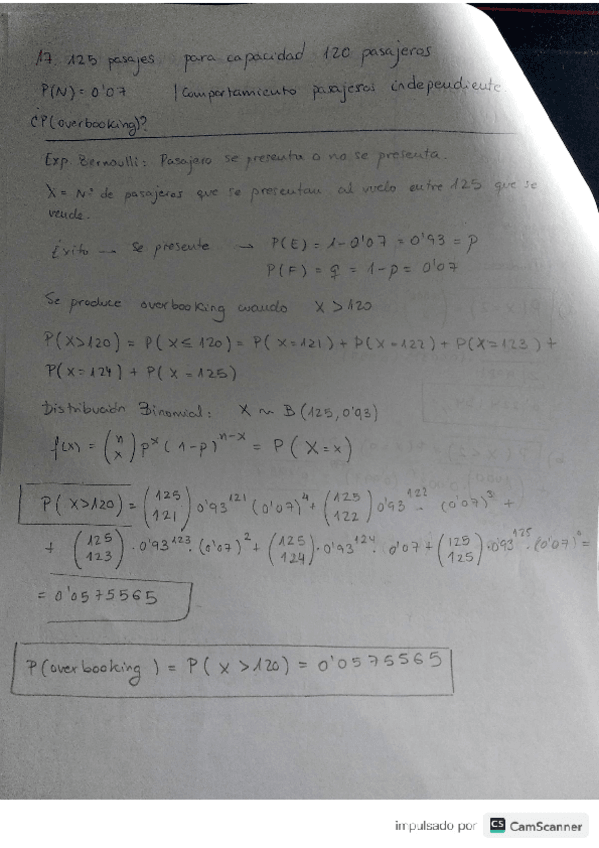 17. 125 pasajes para capacidad 120 pasajeros
P(N) = 0'07 | Comportamiento pasajeros independiente.
¿P(overbooking)?
Exp. Bernoulli: Pasajero se presenta o no se presenta.
X = Nº de pasajeros que se presentan al vuelo entre 125 que se
vende.
Éxito → Se presente → P(E) = 1-0'07 = 0'93 = p
P(F) = q = 1-p = 0'07
Se produce overbooking cuando X > 120
P(X>120) = P(X≤120) = P(X=121) + P(X=122) + P(X=123) +
P(X=124) + P(X=125)
Distribución Binomial: X ~ B(125, 0'93)
f(x) = (n x) p^x (1-p)^{n-x} = P(X=x)
P(X>120) = (125 121) 0'93^121 (0'07)^4 + (125 122) 0'93^122 · (0'07)^3 +
+ (125 123) · 0'93^123 · (0'07)^2 + (125 124) · 0'93^124 · 0'07 + (125 125) · 0'93^125 · (0'07)^0 =
= 0'0575565
P(overbooking) = P(X>120) = 0'0575565
impulsado por CS CamScanner